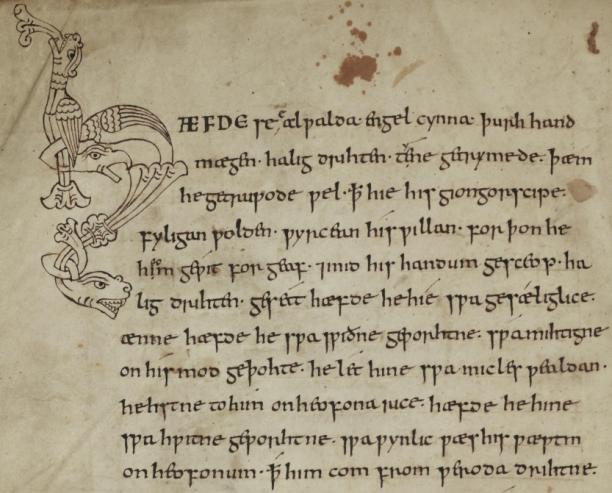 HÆFDE se ealƿalda· engel cynna· þurh hand
mægen· halig drihten· tene getrymede· þæm
he getruƿode ƿel· ꝥ hie his giongorscipe·
fyligan ƿolden· ƿyrcean his ƿillan· for þon he
heom geƿit for geaf· ⁊ mid his handum gesceop· ha
lig drihten· gesett hæfde he hie sƿa gesæliglice·
ænne hæfde he sƿa sƿiðne geƿorhtne· sƿa mihtigne
on his mod geþohte· he let hine sƿa micles ƿealdan·
hehstne to him on heofona rice· hæfde he hine
sƿa hƿitne geƿorhtne· sƿa ƿynlic ƿæs his ƿæstm
on heofonum· ꝥ him com from ƿeroda drihtne·